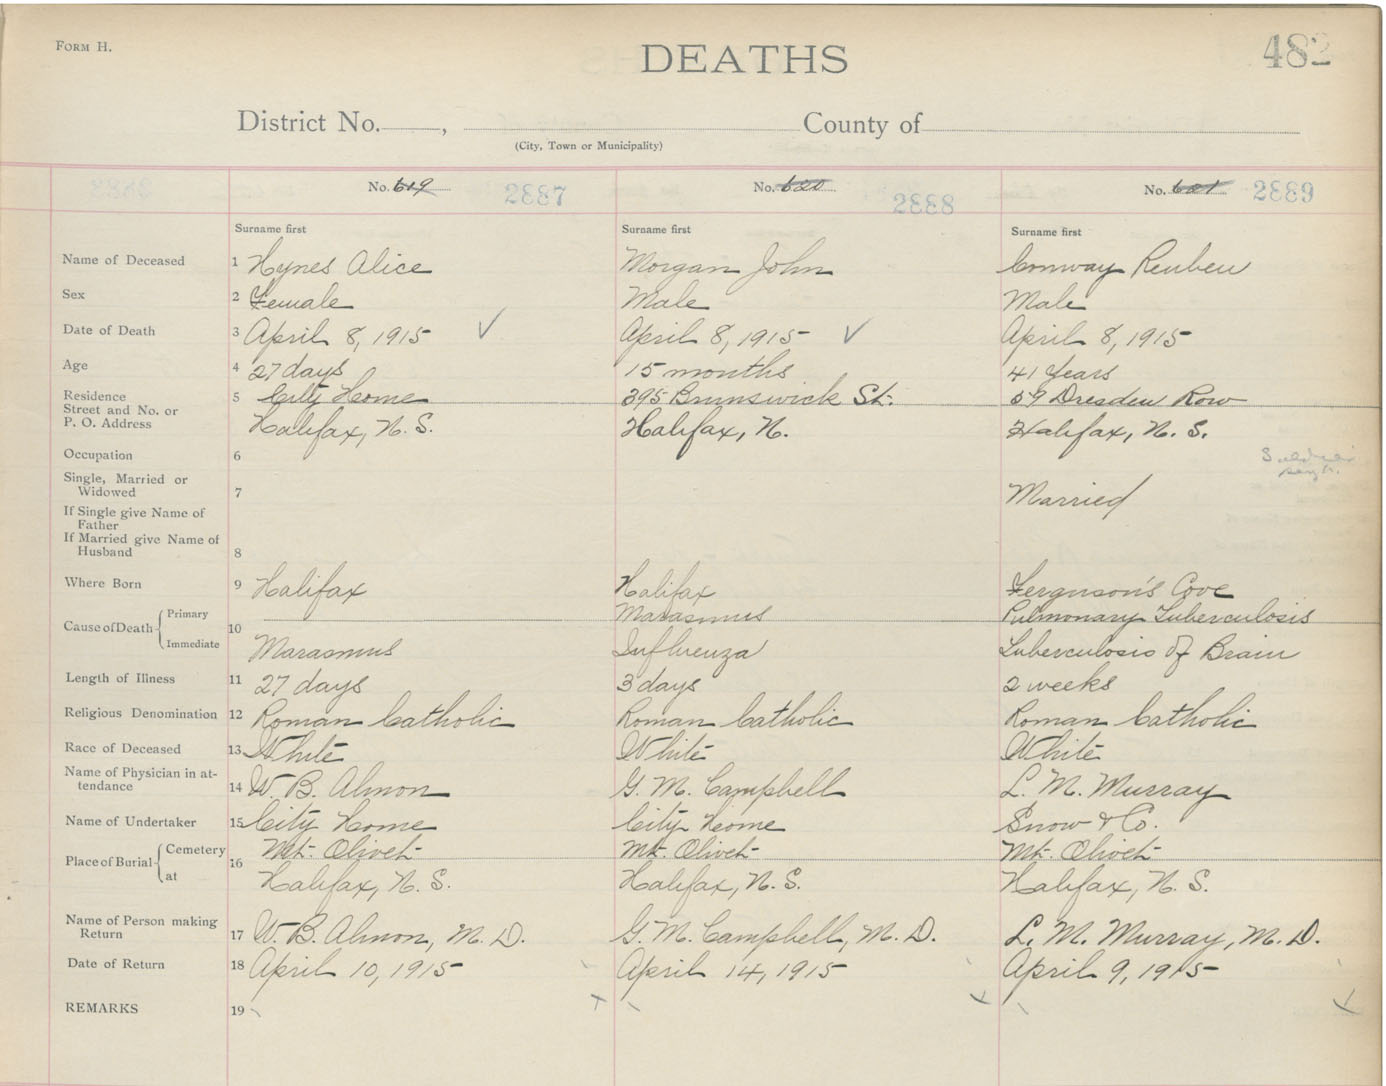 FORM H.
DEATHS
482
District No. , County of
(City, Town or Municipality)
No. 619 2887 No. 620 2888 No. 621 2889
Surname first Surname first Surname first
Name of Deceased 1 Hynes Alice Morgan John Conway Reuben
Sex 2 Female Male Male
Date of Death 3 April 8, 1915 ✓ April 8, 1915 ✓ April 8, 1915
Age 4 27 days 15 months 41 Years
Residence 5 City Home 395 Brunswick St. 59 Dresden Row
Street and No. or
P. O. Address Halifax, N. S. Halifax, N. Halifax, N. S.
Occupation 6
Single, Married or
Widowed 7 Married
If Single give Name of
Father
If Married give Name of
Husband 8
Where Born 9 Halifax Halifax Ferguson's Cove
Cause of Death 10 Primary Marasmus Pulmonary Tuberculosis
Immediate Marasmus Influenza Tuberculosis of Brain
Length of Illness 11 27 days 3 days 2 weeks
Religious Denomination 12 Roman Catholic Roman Catholic Roman Catholic
Race of Deceased 13 White White White
Name of Physician in at-
tendance 14 W. B. Almon G. M. Campbell L. M. Murray
Name of Undertaker 15 City Home City Home Snow & Co.
Place of Burial 16 Cemetery Mt. Olivet Mt. Olivet Mt. Olivet
at Halifax, N. S. Halifax, N. S. Halifax, N. S.
Name of Person making
Return 17 W. B. Almon, M. D. G. M. Campbell, M. D. L. M. Murray, M. D.
Date of Return 18 April 10, 1915 April 14, 1915 April 9, 1915
REMARKS 19